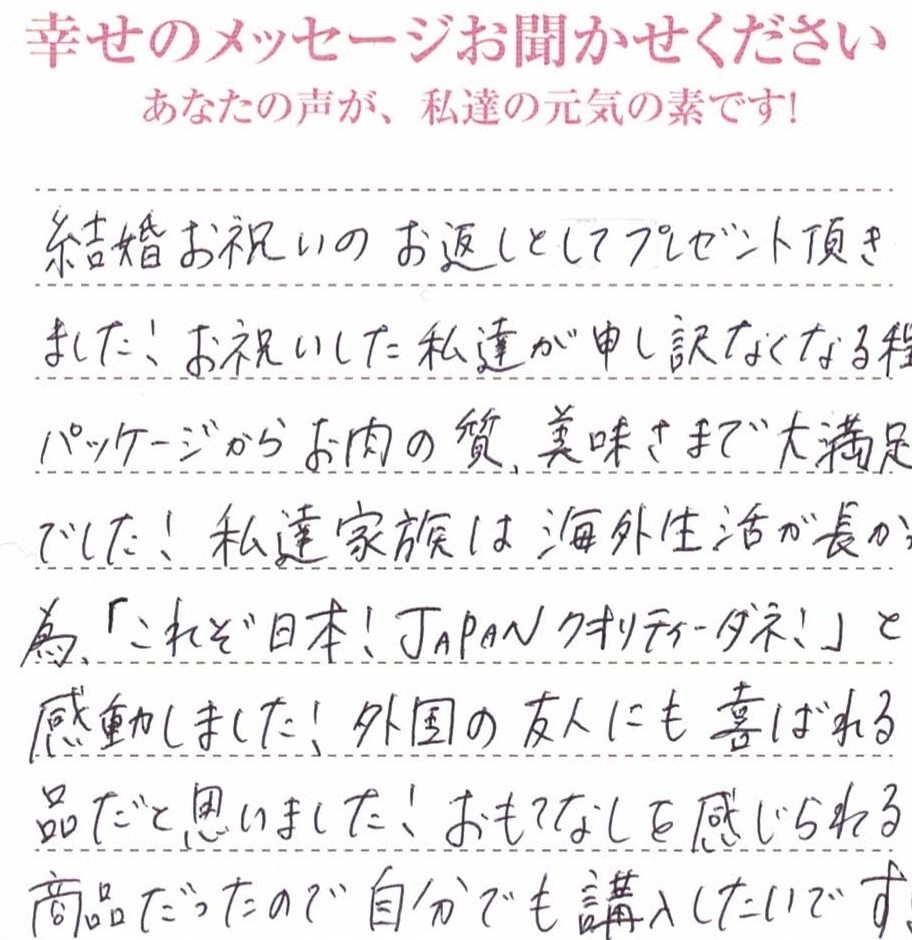 幸せのメッセージお聞かせください
あなたの声が、私達の元気の素です!
結婚お祝いのお返しとしてプレゼント頂き
ました!お祝いした私達が申し訳なくなる程
パッケージからお肉の質、美味さまで大満足
でした!私達家族は海外生活が長か
為、「これぞ日本!JAPANクオリティーダネ!」と
感動しました!外国の友人にも喜ばれる
品だと思いました!おもてなしを感じられる
商品だったので自分でも講入したいです!